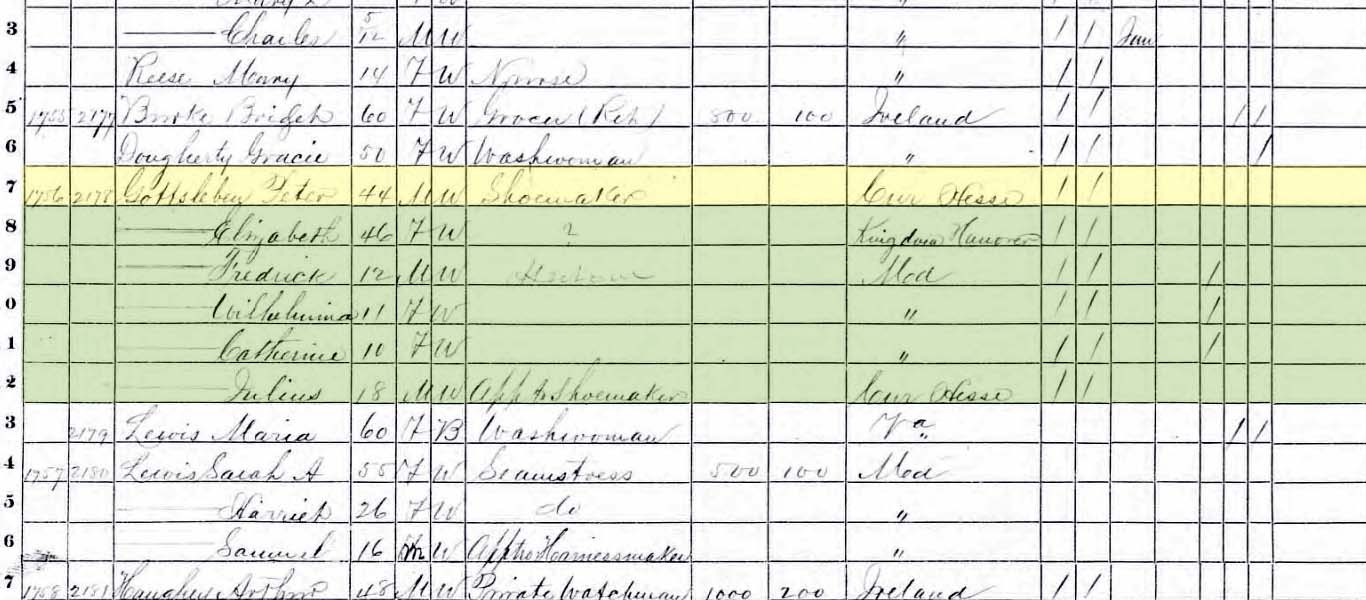 3 Charles 5/12 M W " / / Jan
4 Reese Mary 14 F W Nurse " / /
5 1755 2177 Burke Bridget 60 F W Grocer (Ret) 500 100 Ireland / / / /
6 Dougherty Gracie 50 F W Washwoman " / / /
7 1756 2178 Peter 44 M W Shoemaker Cur Hesse / /
8 Elizabeth 46 F W ? Kingdom Hanover / /
9 Fredrick 12 M W Md / / /
0 Wilhelmina 11 F W " / / /
1 Catherine 10 F W " / / /
2 Julius 18 M W App to Shoemaker Cur Hesse / /
3 2179 Lewis Maria 60 F B Washwoman Va / /
4 1757 2180 Lewis Sarah A 55 F W Seamstress 500 100 Md
5 Harriet 26 F W do "
6 Samuel 16 M W App to Harnessmaker "
7 1758 2181 Haughey Arthur 48 M W Private Watchman 1000 200 Ireland / /